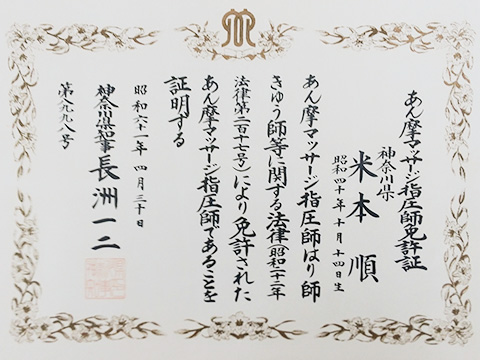 あん摩マッサージ指圧師免許証
神奈川県
米本順
昭和四十年十月十四日生
あん摩マッサージ指圧師はり師
きゅう師等に関する法律(昭和二十二年
法律第二百十七号)により免許された
あん摩マッサージ指圧師であることを
証明する
昭和六十一年四月三十日
神奈川県知事長洲一二
第八九九八号